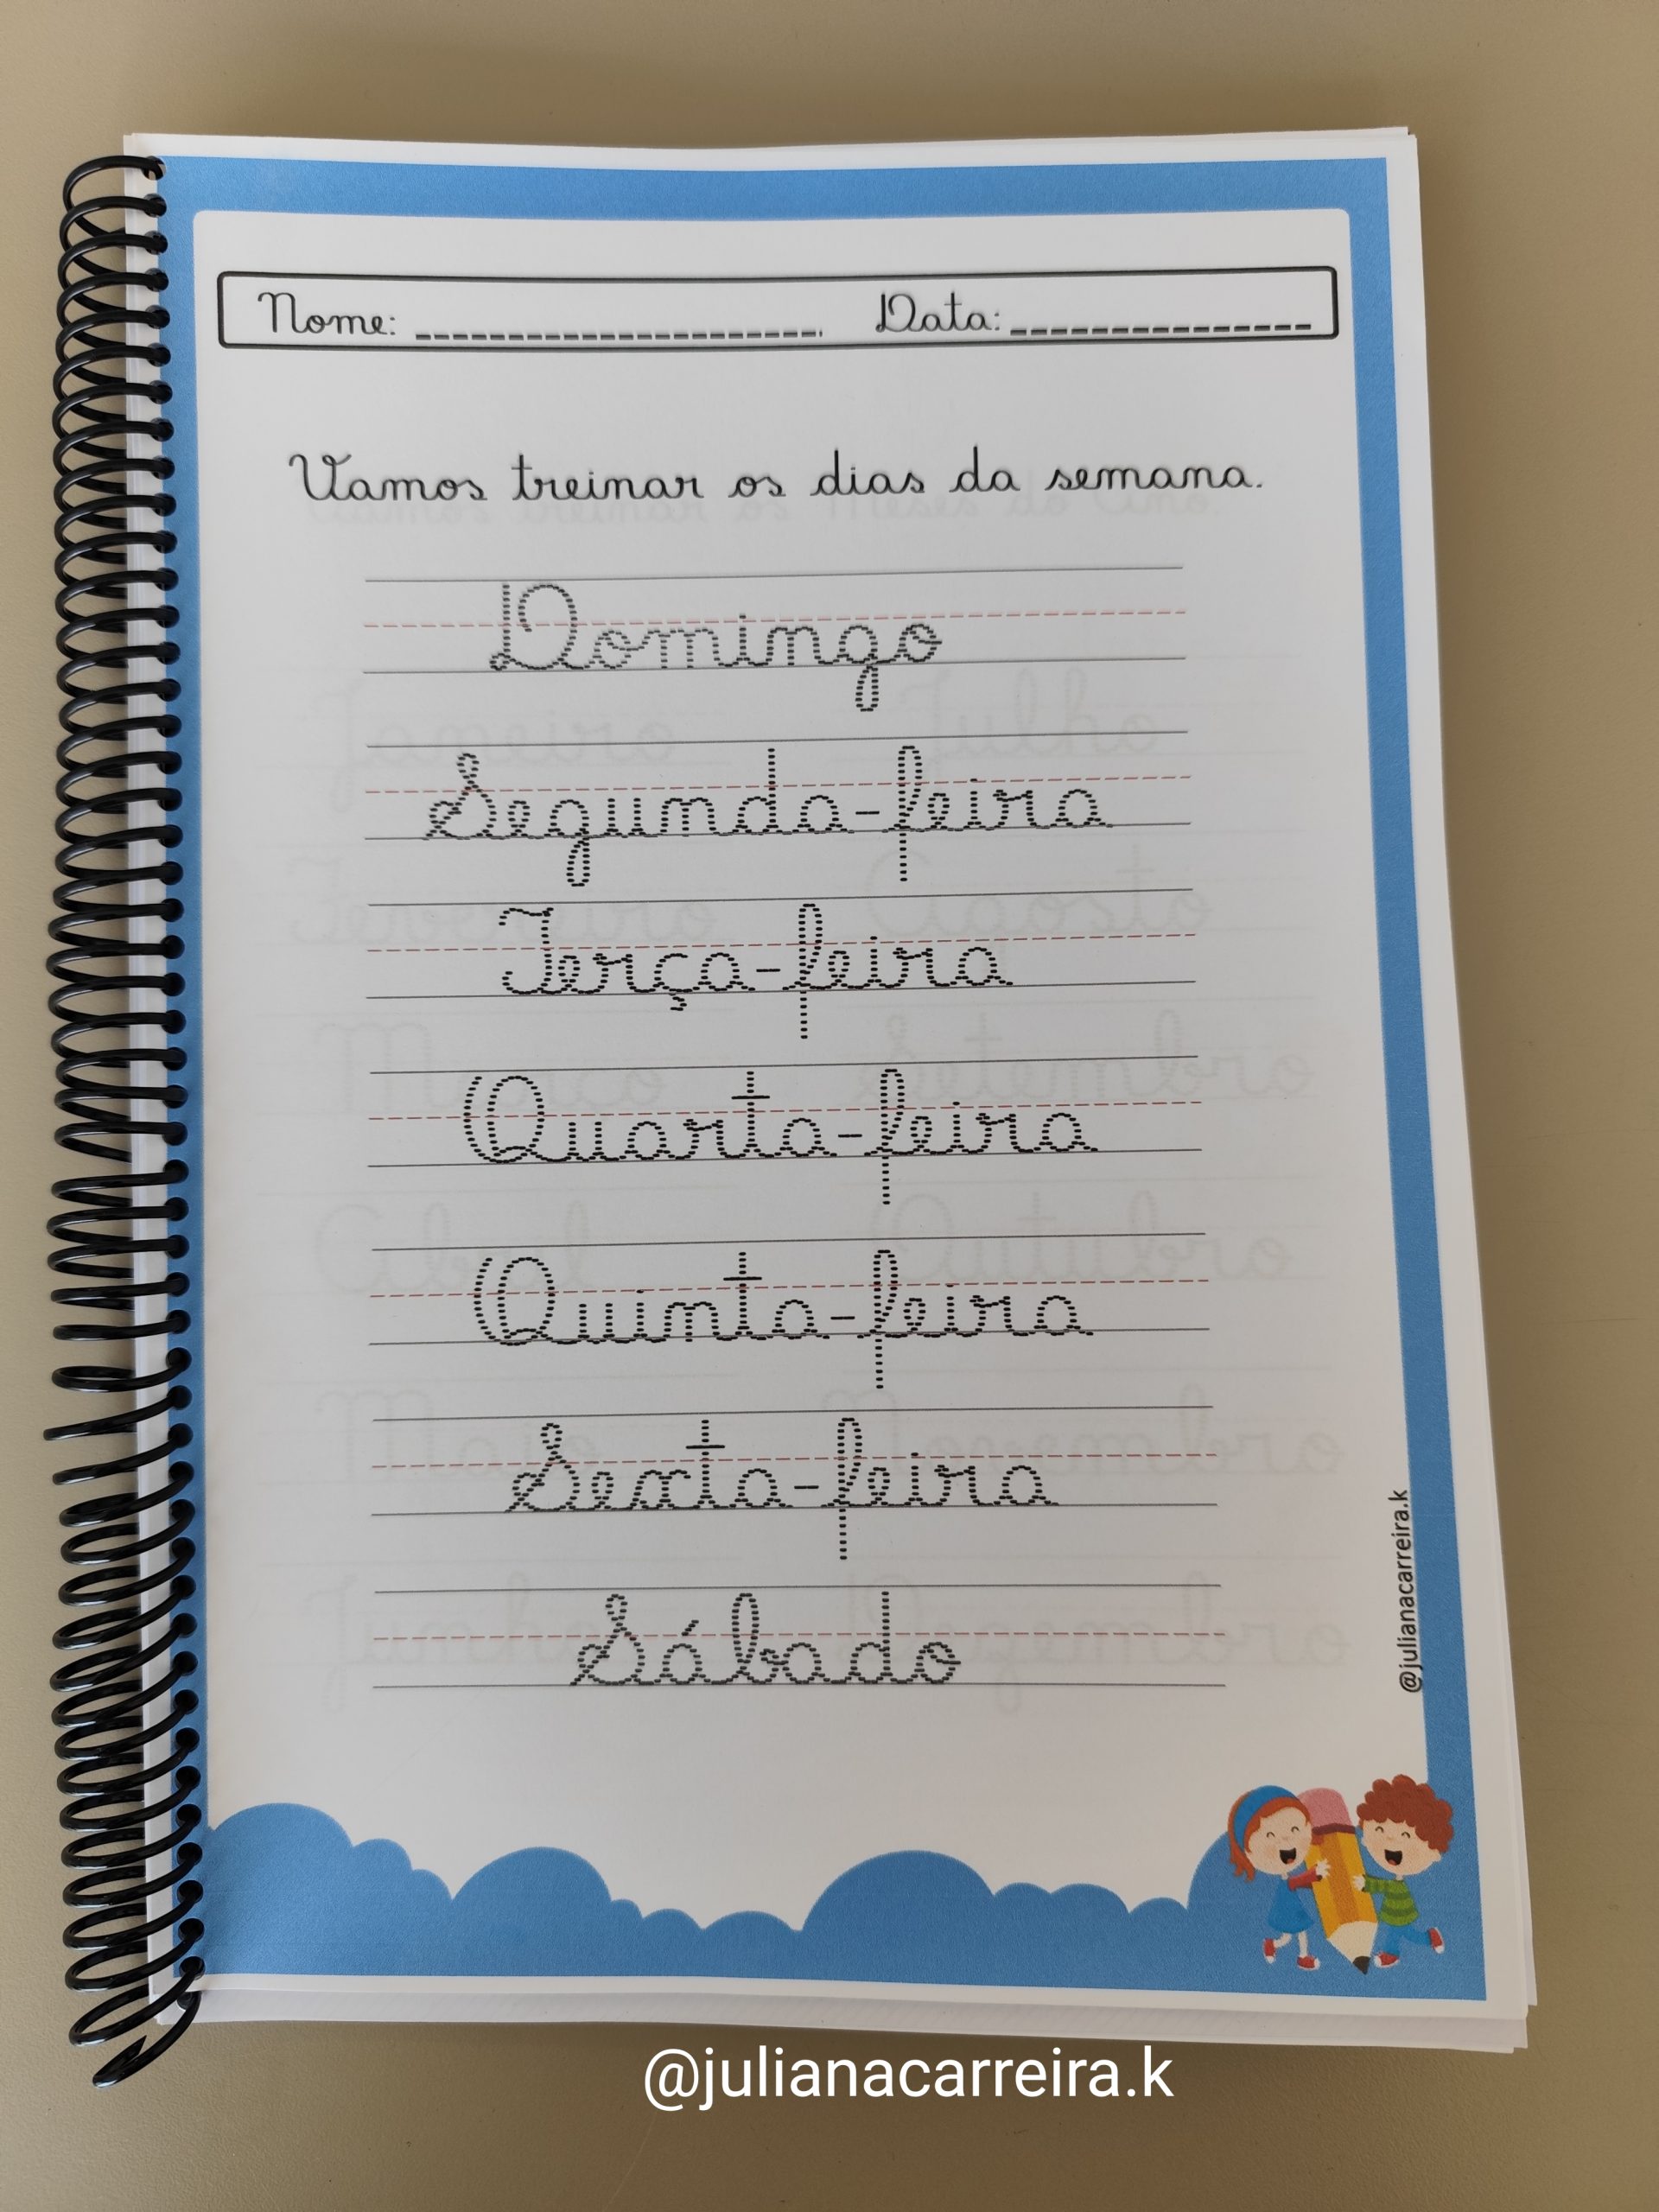 Nome: Data:
Vamos treinar os dias da semana.
Domingo
Segunda-feira
Terça-feira
Quarta-feira
Quinta-feira
Sexta-feira
Sábado
@julianacarreira.k
@julianacarreira.k